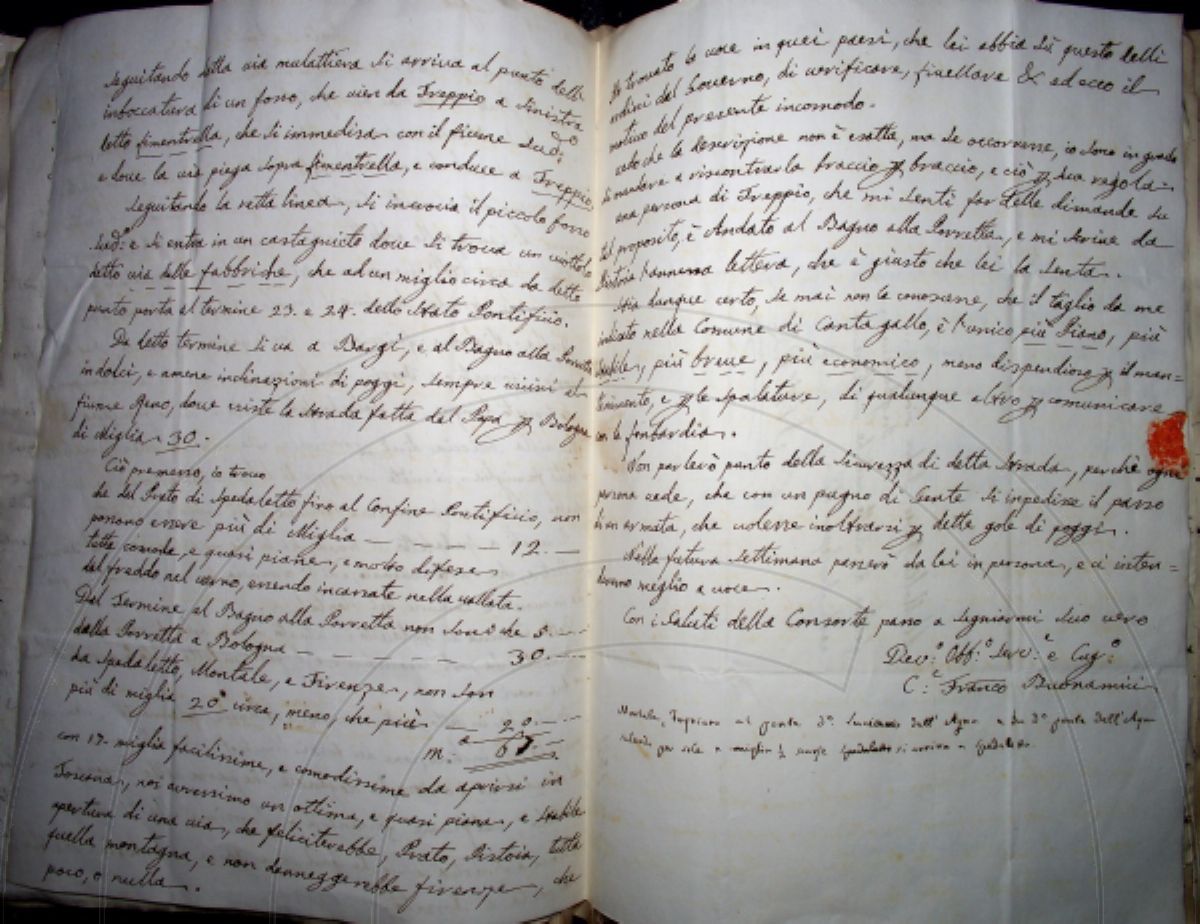 Seguitando detta via mulattiera si arriva al punto dell'
inboccatura di un fosso, che vien da Treppio a Sinistra
detto fimentrella, che si immedisa con il fiume Sud:º
e dove la via piega sopra fimentrella, e conduce a Treppio.
Seguitando la retta linea, si incrocia il piccolo fosso
Sudº: e si entra in un castagnieto dove si trova un viottolo
detto via delle fabbriche, che ad un miglio circa da detto
punto porta al termine 23. e 24. dello Stato Pontificio.
Da detto termine si va a Bargi, e al Bagno alla Porretta
in dolci, e amene inclinazioni di poggi, sempre vicini al
fiume Reno, dove esiste la Strada fatta dal Papa p Bologna
di Miglia 30.
Ciò premesso, io trovo
che dal Prato di Spedaletto fino al Confine Pontificio, non
possono essere più di Miglia — — — — 12. —
tutte comode, e quasi piane, e molto difese
dal freddo nel verno, essendo incassate nella vallata.
Dal Termine al Bagno alla Porretta non sono che 5. —
dalla Porretta a Bologna — — — — — 30. —
da Spedaletto, Montale, e Firenze, non son
più di miglia 20 circa, meno, che più — 20. —
m. a 67.
con 17. miglia facilissime, e comodissime da aprirsi in
Toscana, noi avressimo un ottima, e quasi piana, e stabile
apertura di una via, che feliciterebbe, Prato, Pistoia, tutta
quella montagna, e non danneggerebbe firenze, che
poco, o nulla.
Ho trovato la voce in quei paesi, che lei abbia dà questo delli
ordini del Governo, di verificare, livellare &c ed ecco il
motivo del presente incomodo.
vedo che la descrizione non è esatta, ma se occorresse, io sono in grado
di mandare a riscontrarla braccio p braccio, e ciò p sua regola.
una persona di Treppio, che mi sentì far delle dimande su
tal proposito, è andato al Bagno alla Porretta, e mi scrive da
Pistoia l'annessa lettera, che è giusto che lei la senta.
Stia dunque certo, se mai non la conoscesse, che il taglio da me
indicato nella Comune di Cantagallo, è l'unico più Piano, più
stabile, più breve, più economico, meno dispendioso p il man=
tenimento, e p le spalature, di qualunque altro p comunicare
con la lombardia.
Non parlerò punto della Sicurezza di detta Strada, perchè ogni
persona vede, che con un pugno di Gente si impedisce il passo
di un armata, che volesse inoltrarsi p dette gole di poggi.
Nella futura settimana passerò da lei in persona, e ci inten=
deremo meglio a voce.
Con i Saluti della Consorte passo a segniarmi Suo vero
Dev:º Obb:º Serv:e e Cug:º
C:e Franco Buonamici
Montale, al ponte dº. dell' Agna e da dº ponte dell'Agna
per sole si arriva a Spedaletto.